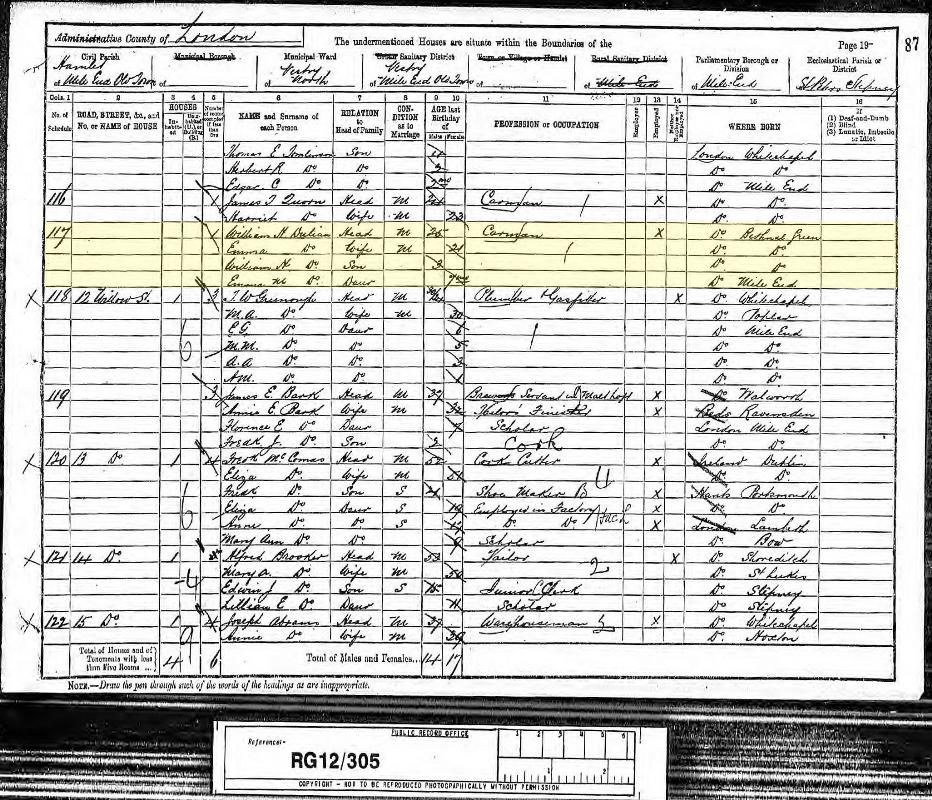 Administrative County of London
The undermentioned Houses are situate within the Boundaries of the
Page 19
87
Civil Parish
Municipal Borough
Municipal Ward
Urban Sanitary District
Town or Village or Hamlet
Rural Sanitary District
Parliamentary Borough or Division
Ecclesiastical Parish or District
Hamlet
of Mile End Old Town
of
Vestry
of North
Vestry
of Mile End Old Town
of
of Mile End
of Mile End
of St Peters Stepney
Cols. 1 2 3 4 5 6 7 8 9 10 11 12 13 14 15 16
No. of Schedule
ROAD, STREET, &c., and No. or NAME of HOUSE
HOUSES
NAME and Surname of each Person
RELATION to Head of Family
CONDITION as to Marriage
AGE last Birthday of
PROFESSION or OCCUPATION
Employer
Employed
WHERE BORN
If
(1) Deaf-and-Dumb
(2) Blind
(3) Lunatic, Imbecile or Idiot
Thomas E Tomlinson Son 4 London Whitechapel
Herbert R Do Do Do Do
Edgar C Do Do Do Mile End
116 1 James T Quorn Head M Carman x Do Do
Harriet Do Wife M 23 Do Do
117 1 William H Dulian Head M 25 Carman x Do Bethnal Green
Emma Do Wife M 21 Do Do
William H Do Son 3 Do Do
Emma M Do Daur Do Mile End
x 118 12 Willow St. 1 3 T. W. Greenough Head M Plumber & Gasfitter x Do Whitechapel
M.A. Do Wife M 30 Do Poplar
E.G. Do Daur 6 Do Mile End
M.M. Do Do 5 Do Do
A.A Do Do 3 Do Do
A.M. Do Do 1 Do Do
119 3 James E. Bark Head M 39 Brewers Servant x Walworth
Annie E. Bark Wife M 32 Tailors Finisher x Beds Ravensden
Florence E Do Daur 7 Scholar London Mile End
Fredk J. Do Son 2 Do Do
Cork
x 120 13 Do 1 4 McComas Head M 52 Cork Cutter x Ireland Dublin
Eliza Do Wife M 51 Do Do
Fredk Do Son S 21 Shoe Maker x Hants Portsmouth
Eliza Do Daur S 19 Employed in Factory x Do Do
Anne Do Do S 17 Do Do x London Lambeth
Mary Ann Do Do 9 Scholar Do Bow
x 121 14 Do 1 Alfred Brooker Head M 53 Tailor x Do Shoreditch
Mary A. Do Wife M 50 Do St Lukes
Edwin J Do Son S 15 Junior Clerk Do Stepney
Lillian E Do Daur 11 Scholar Do Stepney
x 122 15 Do 1 4 Joseph Abrams Head M 39 Warehouseman x Do Whitechapel
Annie Do Wife M 39 Do Hoxton
Total of Houses and of Tenements with less than Five Rooms ... 4 6 Total of Males and Females... 14 17
NOTE.—Draw the pen through such of the words of the headings as are inappropriate.
PUBLIC RECORD OFFICE
Reference:-
RG12/305
1 2 3 4 5 6
1 2
COPYRIGHT - NOT TO BE REPRODUCED PHOTOGRAPHICALLY WITHOUT PERMISSION